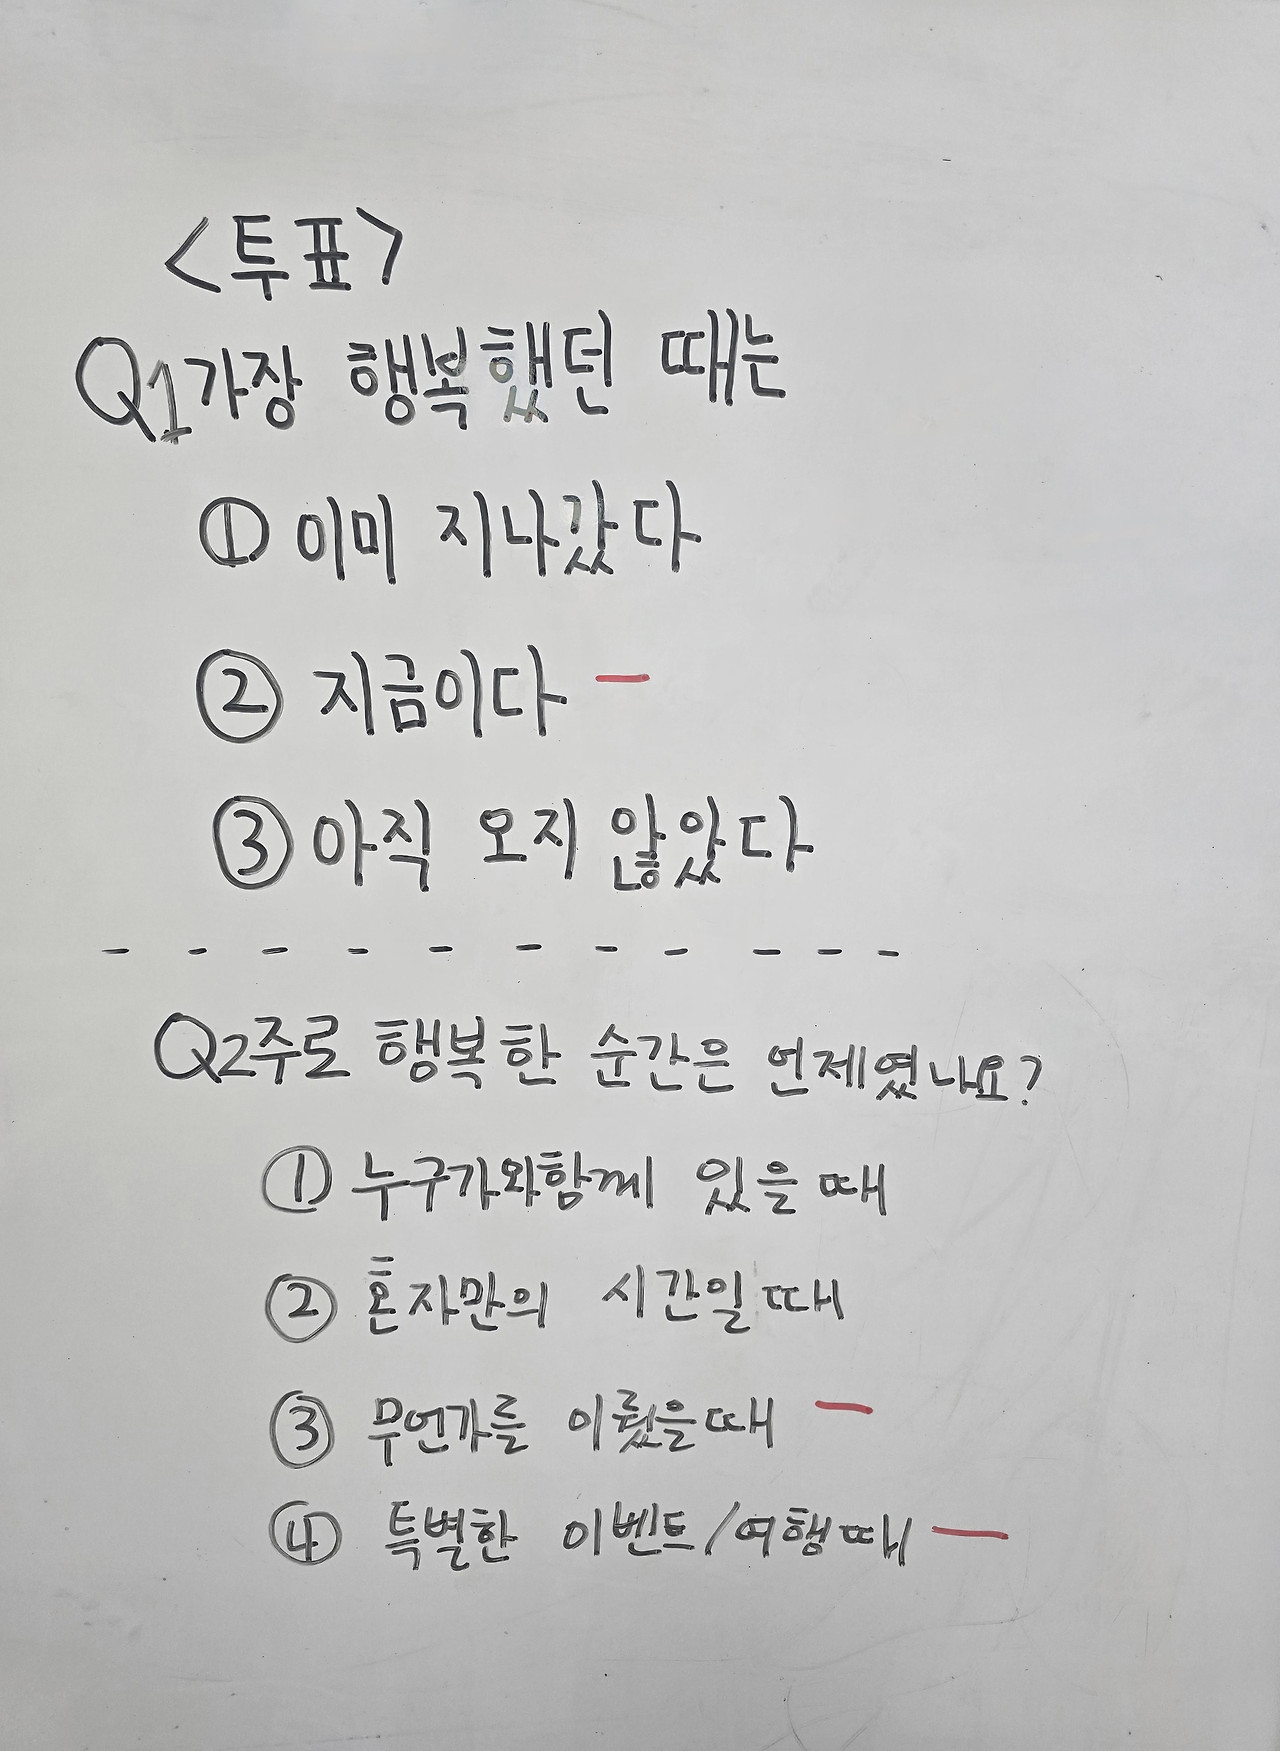 <투표>
Q1 가장 행복했던 때는
① 이미 지나갔다
② 지금이다 -
③ 아직 오지 않았다
- - - - - - - - - - -
Q2 주로 행복한 순간은 언제였나요?
① 누구가와함께 있을 때
② 혼자만의 시간일 때
③ 무언가를 이뤘을때 -
④ 특별한 이벤트/여행때 -